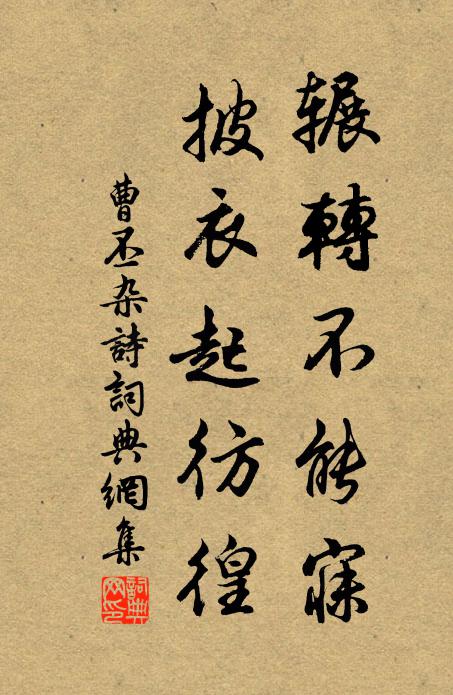 辗轉不能寐
披衣起彷徨
曹丕杂詩詞典網集
詞典網印